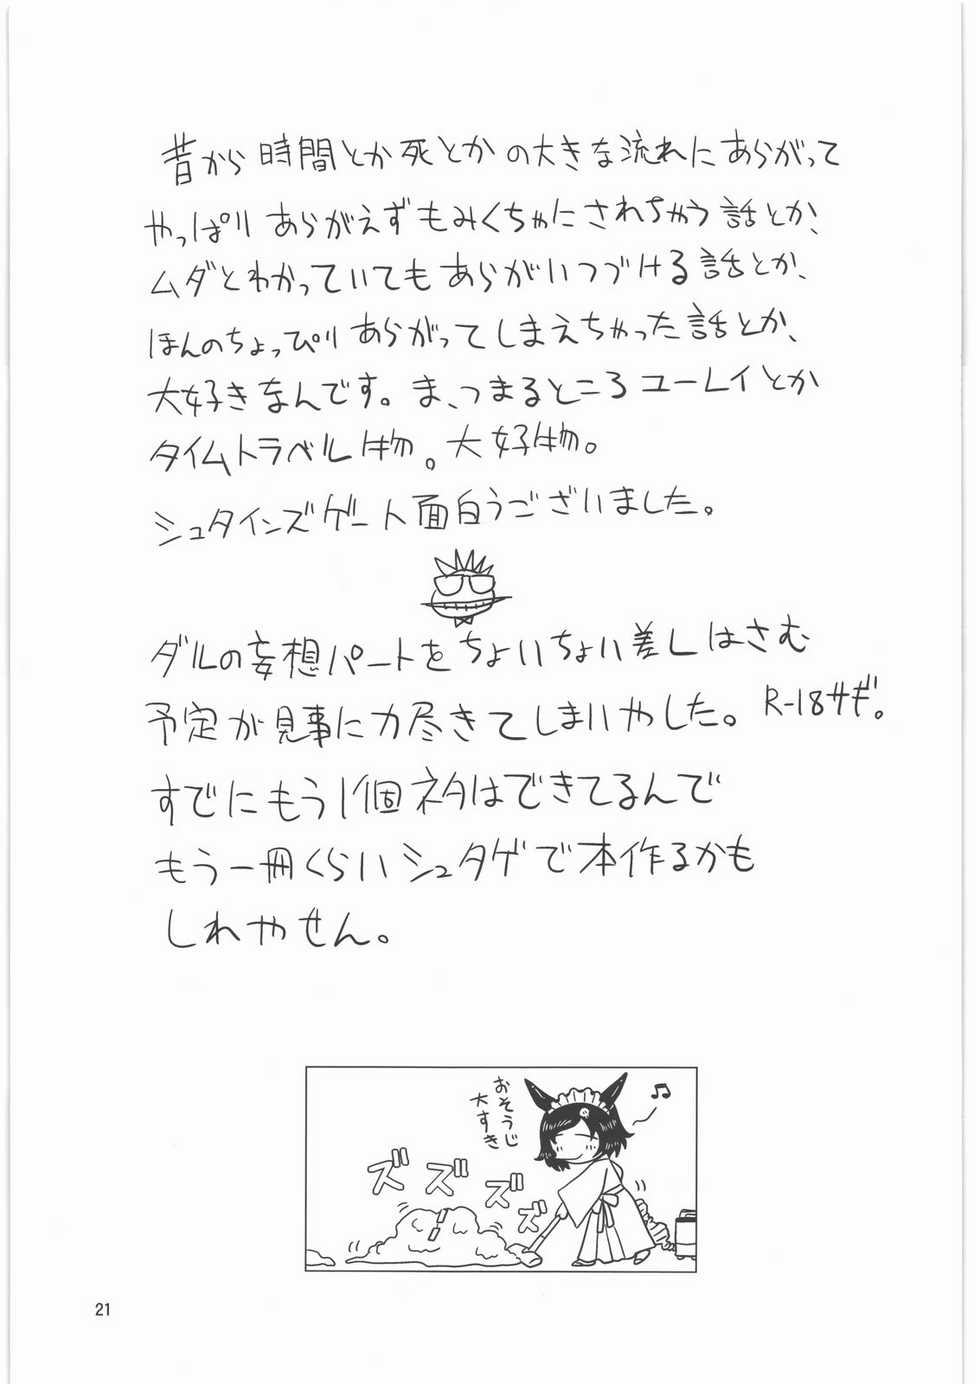 昔から時間とか死とかの大きな流れにあらがって
やっぱりあらがえずもみくちゃにされちゃう話とか、
ムダとわかっていてもあらがいつづける話とか、
ほんのちょっぴりあらがってしまえちゃった話とか、
大好きなんです。ま、つまるところユーレイとか
タイムトラベル物。大好物。
シュタインズゲート面白うございました。
ダルの妄想パートをちょいちょい差しはさむ
予定が見事に力尽きてしまいやした。R-18サギ。
すでにもう1個ネタはできてるんで
もう一冊くらいシュタゲで本作るかも
しれやせん。
おそうじ
大すき
ズズズズ
21